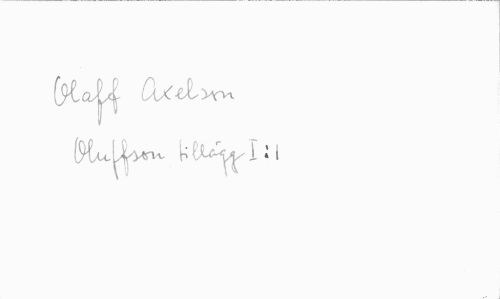 Olaff Axelson
Oluffson tillägg I:1